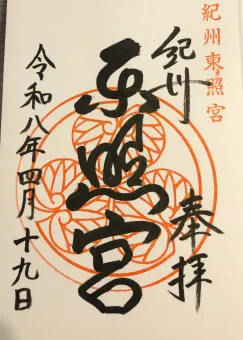 紀州東照宮
紀州
奉拝
东照宮
令和八年四月十九日